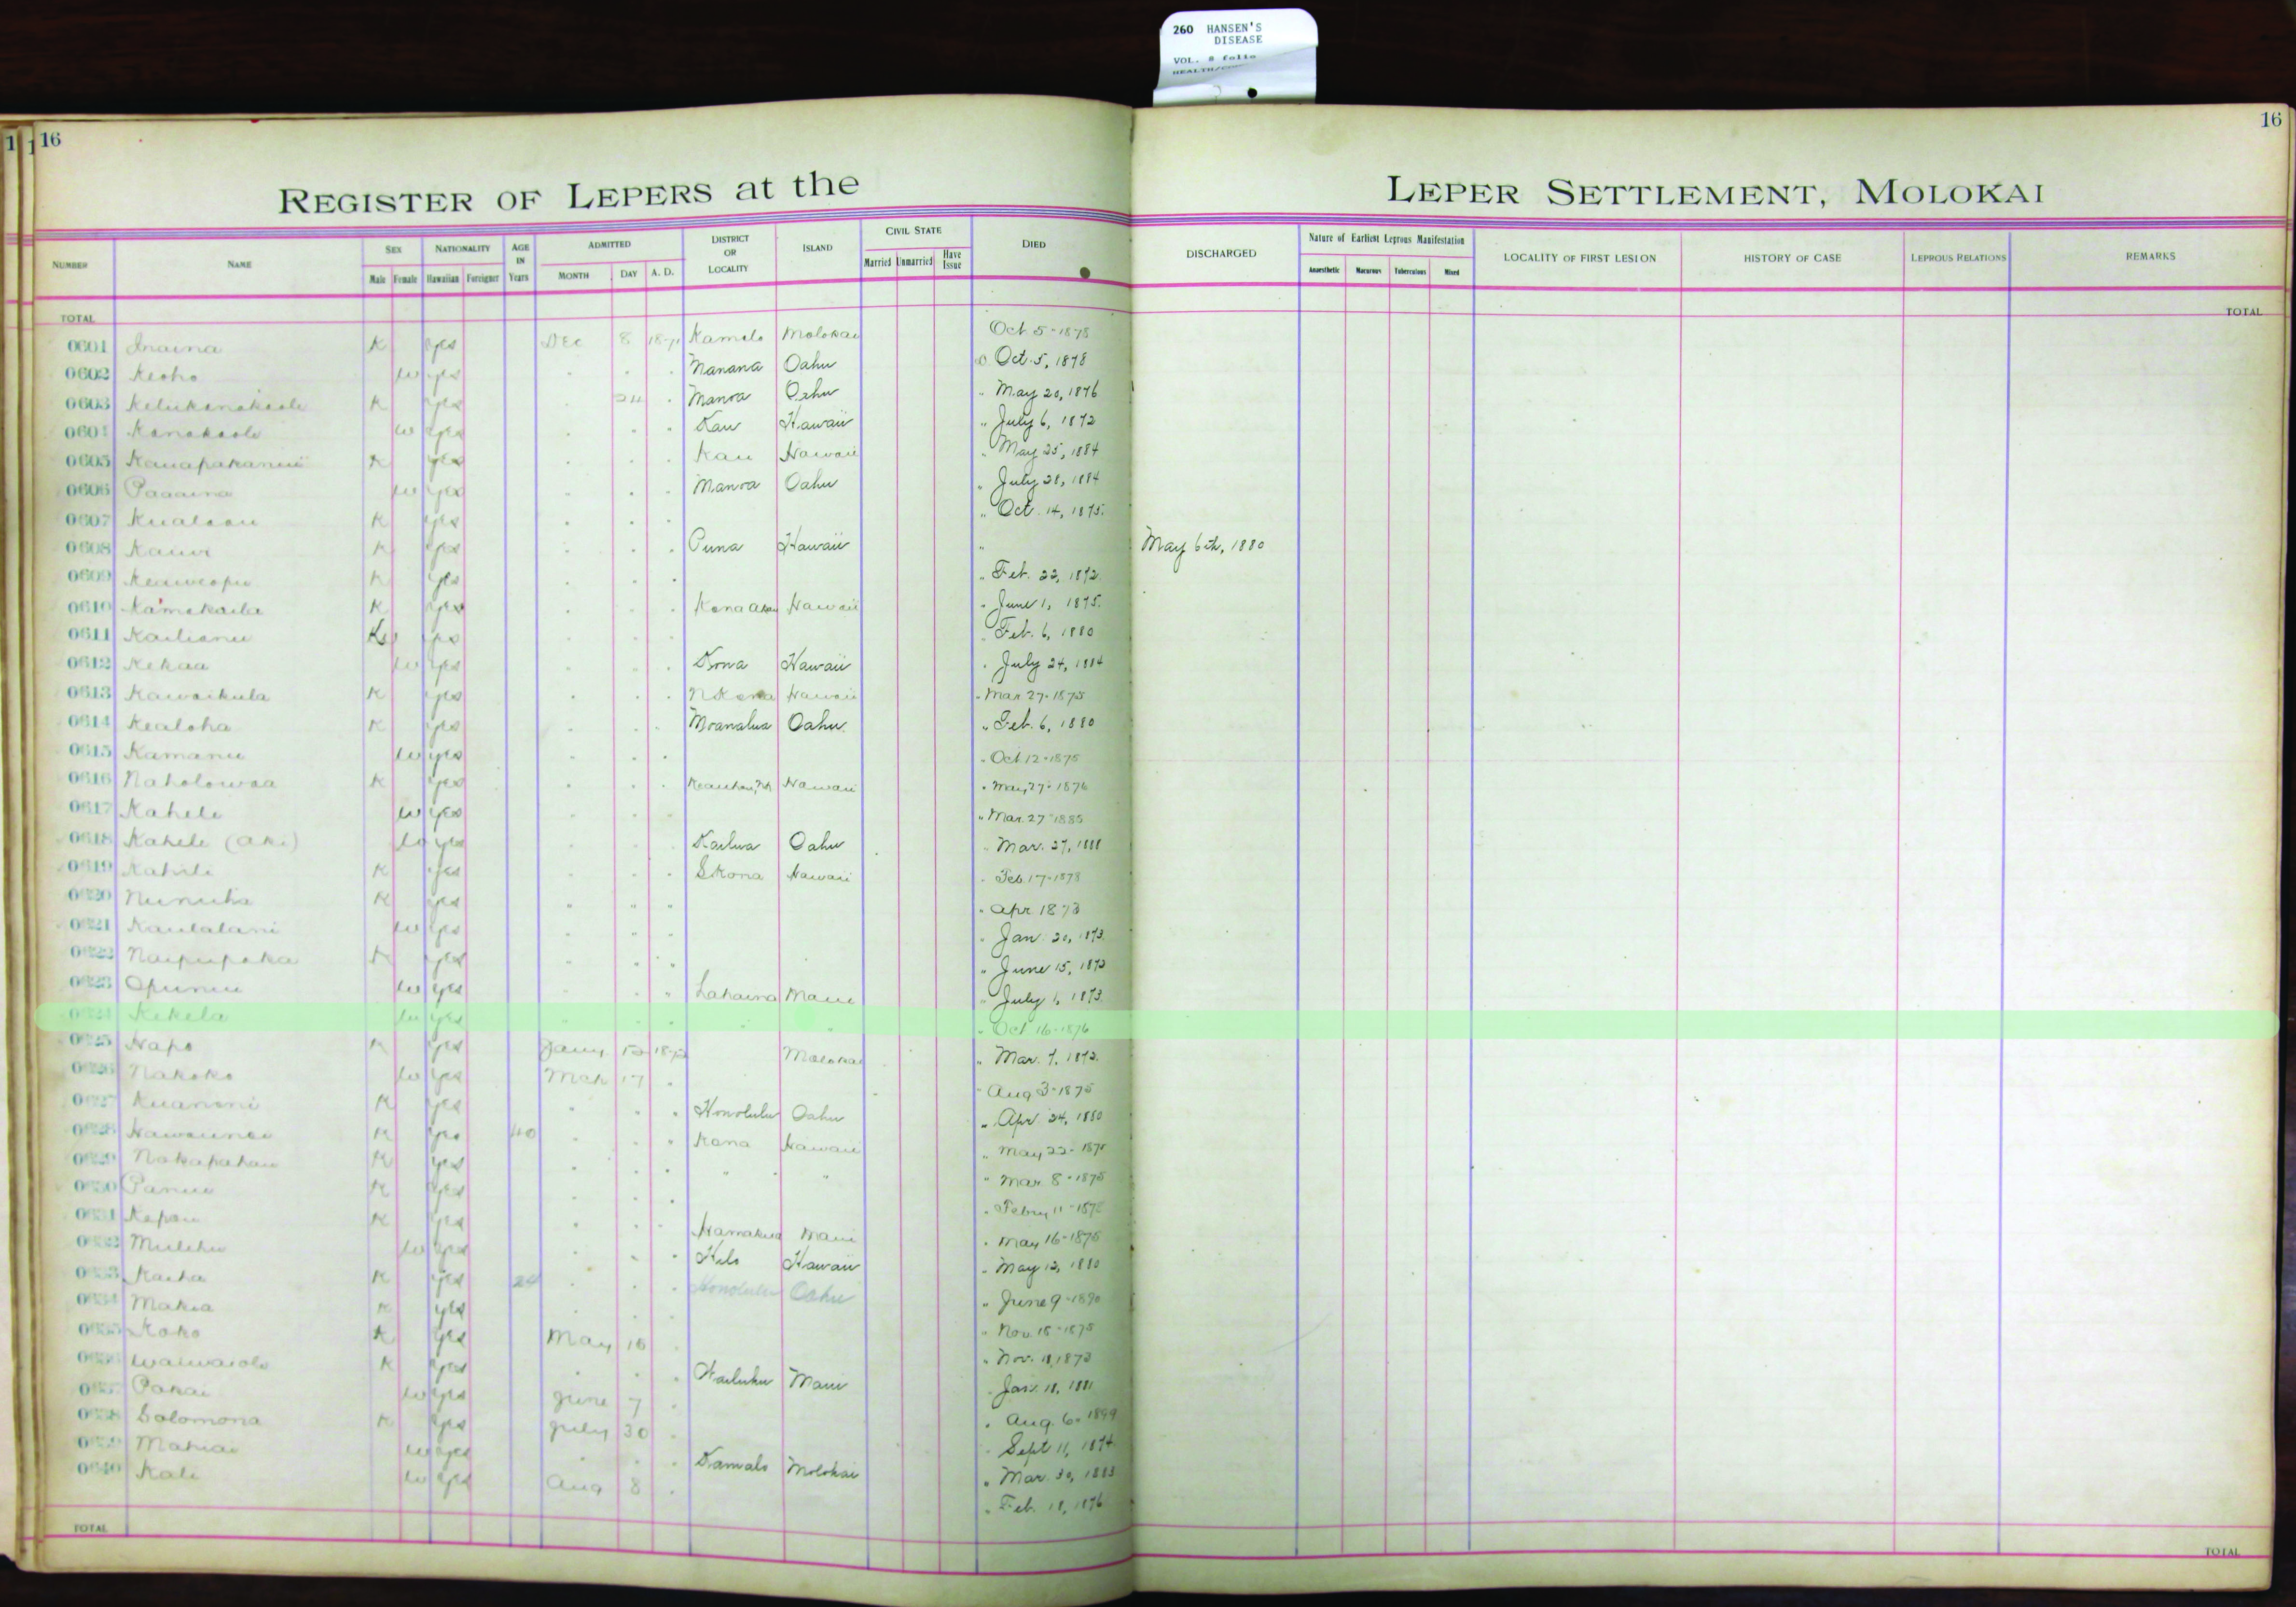 260 HANSEN'S
DISEASE
VOL. 8 folio
16
16
REGISTER OF LEPERS at the LEPER SETTLEMENT, MOLOKAI
NUMBER NAME SEX Male Female NATIONALITY Hawaiian Foreigner AGE IN Years ADMITTED MONTH DAY A. D. DISTRICT OR LOCALITY ISLAND CIVIL STATE Married Unmarried Have Issue DIED DISCHARGED Nature of Earliest Leprous Manifestation Anaesthetic Macurous Tuberculous Mixed LOCALITY OF FIRST LESION HISTORY OF CASE LEPROUS RELATIONS REMARKS
TOTAL TOTAL
0601 Inaina K yes Dec 8 Kamalo Molokai Oct 5-1878
0602 Keoho w yes Manana Oahu Oct. 5, 1878
0603 K yes 24 Manoa Oahu " May 20, 1876
Kanakaole w yes Kau Hawaii " July 6, 1872
0605 K yes Kau Hawaii " May 25, 1884
0606 Paaaina w yes Manoa Oahu " July 28, 1884
0607 Kualaau K yes " Oct. 14, 1875.
0608 Kauwe K yes Puna Hawaii " May 6th, 1880
0609 Keaweopu K yes " Feb. 22, 1872.
0610 Kamakaila K yes Kona Akau Hawaii " June 1, 1875.
0611 Kailianu yes Feb. 6, 1880
0612 Kekaa w yes Kona Hawaii " July 24, 1884
0613 Kawaikula K yes N Kona Hawaii " Mar 27-1875
0614 Kealoha K yes Moanalua Oahu " Feb. 6, 1880
0615 Kamanu w yes " Oct 12-1875
0616 Naholowaa K yes Hawaii " May 27-1876
0617 Kahele w yes " Mar. 27-1885
0618 Kahele (Aki) w yes Kailua Oahu " Mar. 27, 1888
0619 Kahili K yes S Kona Hawaii " Feb. 17-1878
0620 Nunuha K yes " " " " Apr. 1873
0621 Kaulalani w yes " Jan. 20, 1873.
0622 Naipupaka K yes " June 15, 1873
0623 Opunui w yes Lahaina Maui " July 1, 1873.
0624 Kekela w yes " Oct 16-1876
0625 Napo K yes Jany 1872 Molokai " Mar. 7, 1872.
0626 Nakoko w yes Mch 17 " Aug 3-1875
0627 Kuanoni K yes Honolulu Oahu " Apr. 24, 1880
0628 K yes 40 Kona Hawaii " May 22-1875
0629 Nakapahau K yes " " " Mar. 8-1875
0630 Panui K yes " Febry 11-1878
0631 Kepau K yes Hamakua Maui " May 16-1875
0632 Mulehu w yes Hilo Hawaii " May 12, 1880
0633 Kaiha K yes 24 Honolulu Oahu " June 9-1890
0634 Makia K yes " Nov. 18-1875
0635 Koko K yes May 10 " Nov. 11, 1873
0636 K yes Wailuku Maui Jan. 11, 1881
0637 Pakai w yes June 7 " Aug. 6. 1899
0638 Solomona K yes July 30 Sept 11, 1874
0639 Mahiai w yes Kamalo Molokai " Mar. 30, 1883
0640 Kali w yes Aug 8 " Feb. 18, 1876
TOTAL TOTAL